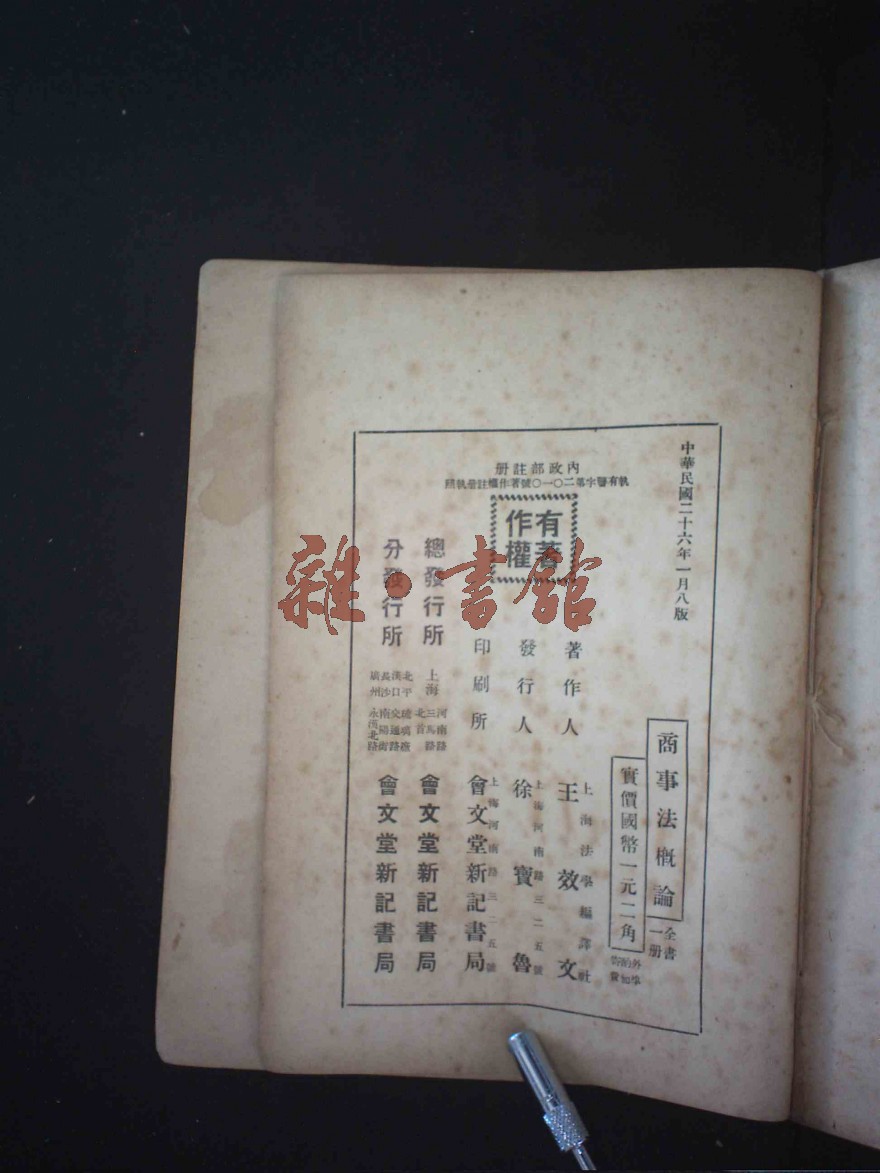 中華民國二十六年一月八版
商事法概論
全書一册
實價國幣一元二角
外埠酌加寄費
內政部註册
執有警字第二〇一〇號著作權註册執照
有著作權
著作人
上海法學編譯社
王效文
發行人
上海河南路三二五號
徐寶魯
印刷所
上海河南路三二五號
會文堂新記書局
總發行所
上海
河南路三馬路北首
會文堂新記書局
分發行所
北平
漢口
長沙
廣州
琉璃廠
交通路
南陽街
永漢北路
會文堂新記書局
雜·書館